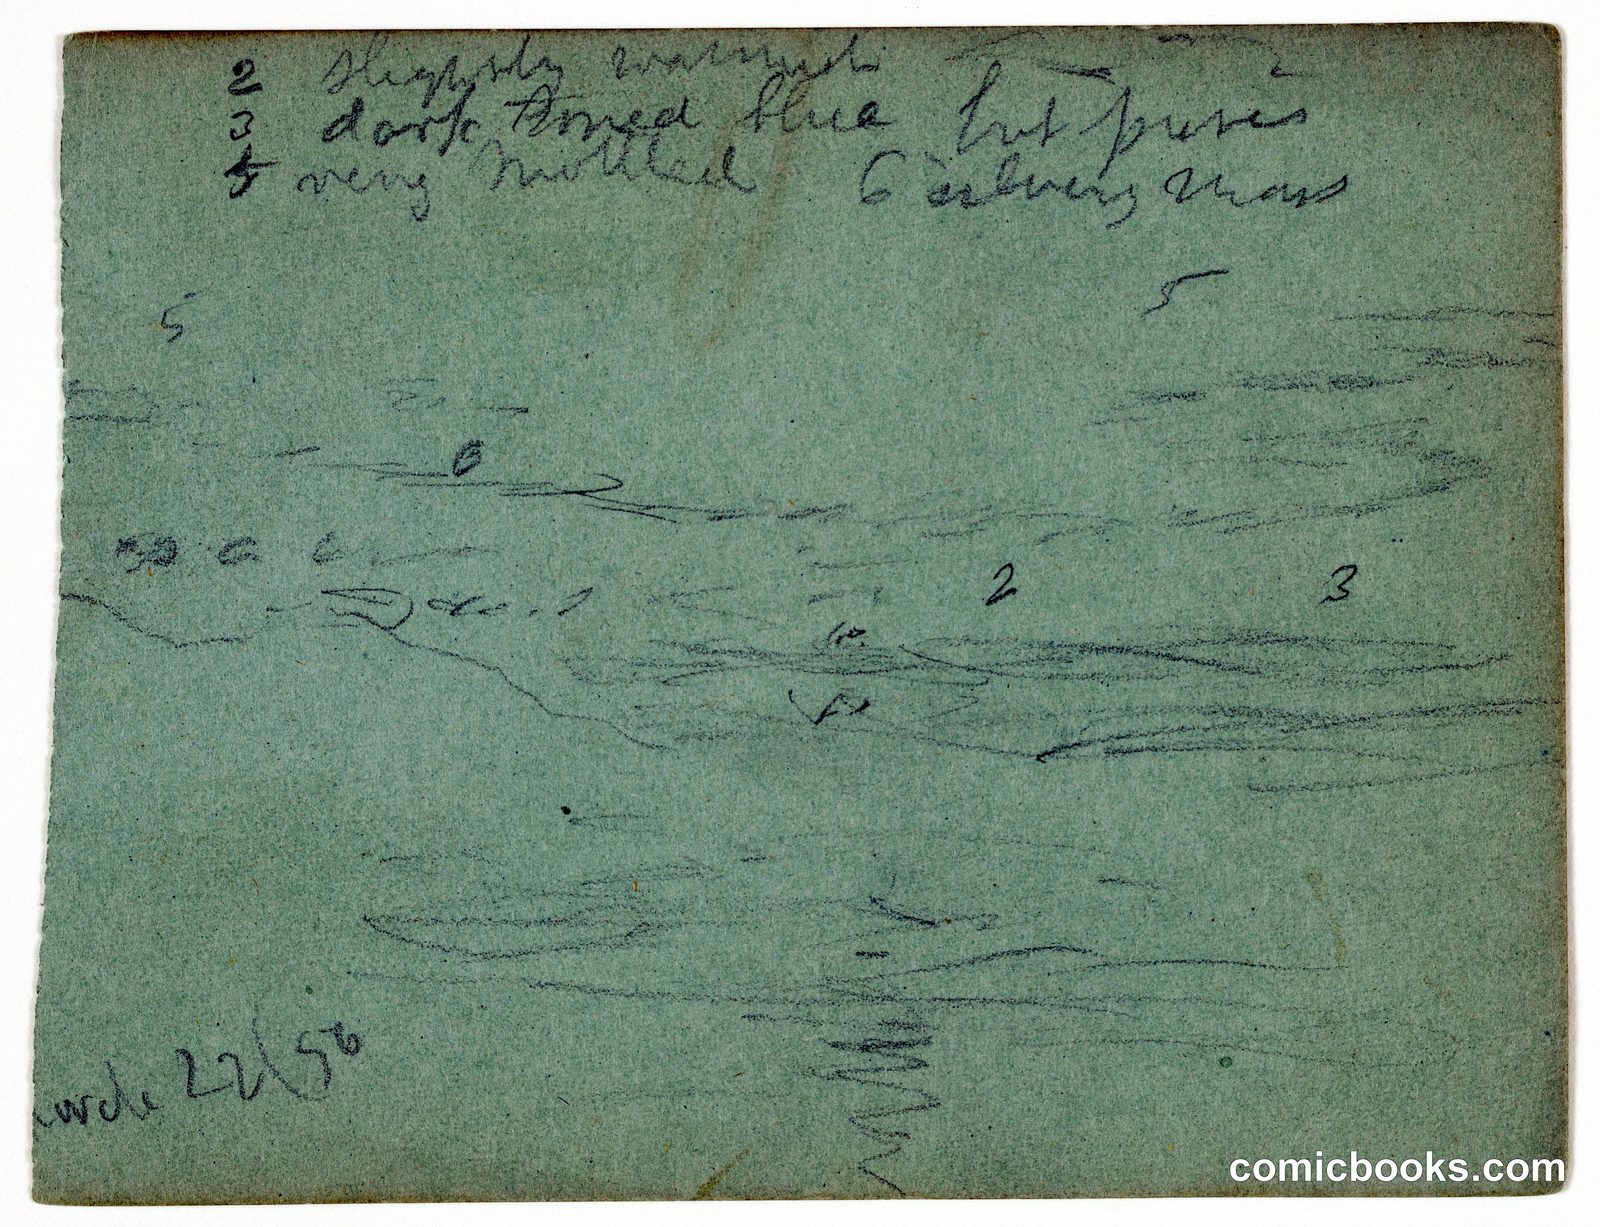 2 slightly
3 dark toned blue but purer
5 very mottled 6 silvery mass
5 5
6
6 6
2 3
22/56
comicbooks.com